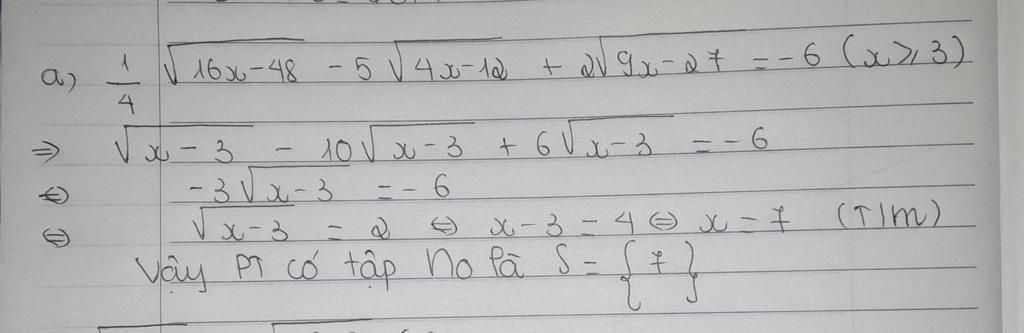 a) 1/4 √(16x-48) - 5√(4x-12) + 2√(9x-27) = -6 (x ⩾ 3)
⇒ √(x-3) - 10√(x-3) + 6√(x-3) = -6
⇔ -3√(x-3) = -6
⇔ √(x-3) = 2 ⇔ x-3 = 4 ⇔ x = 7 (T/m)
Vậy PT có tập No là S = {7}